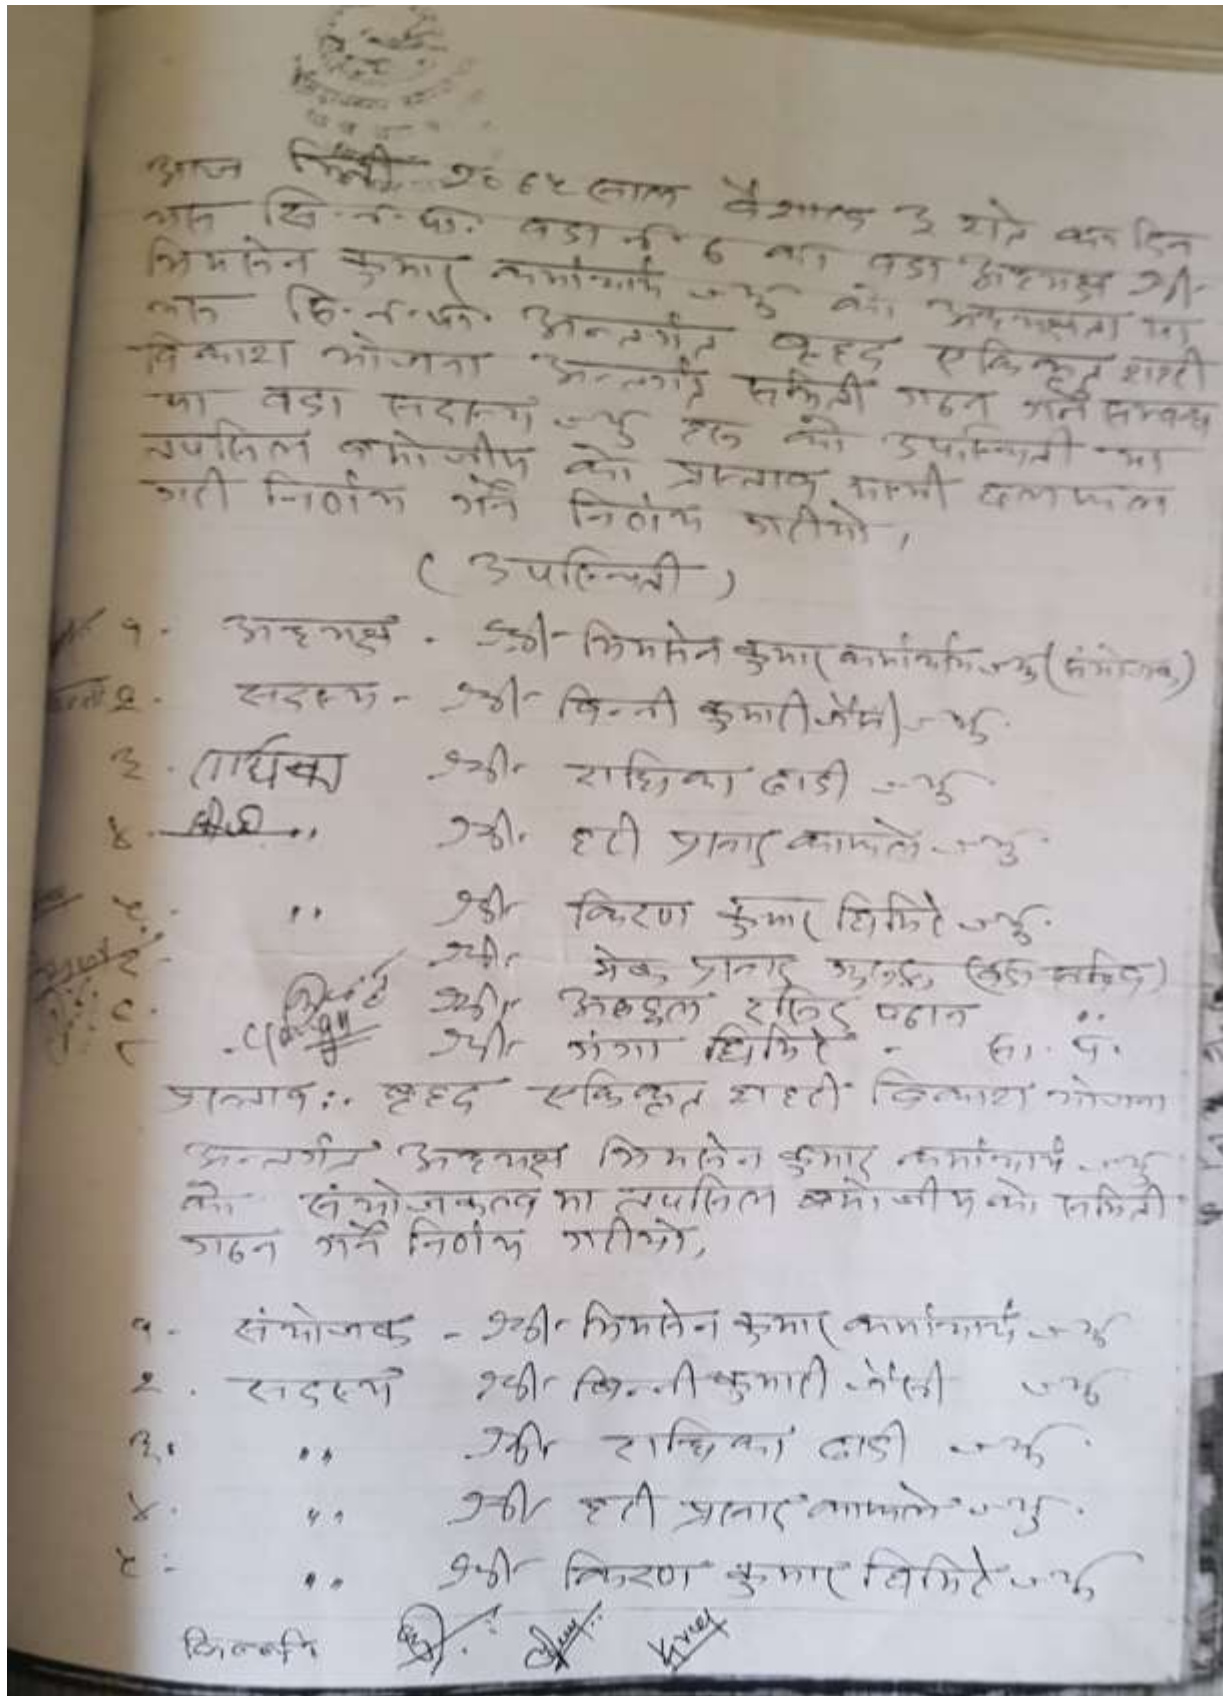 आज मिती २०७५ साल वैशाख ३ गते का दिन
न.पा. वडा नं ६ का वडा अध्यक्ष श्री
भिमसेन कुमार कर्माचार्य ज्यु को अध्यक्षता मा
अन्तर्गत बृहद एकिकृत शहरी
विकाश योजना अन्तर्गत समिती गठन गर्ने सम्बन्ध
मा वडा सदस्य ज्यु हरु को उपस्थिती मा
तपसिल बमोजीम को प्रस्ताव माथी छलफल
गरी निर्णय गर्ने निर्णय गरीयो,
( उपस्थिती )
१. अध्यक्ष - श्री भिमसेन कुमार कर्माचार्य ज्यु (संयोजक)
२. सदस्य - श्री विन्नी कुमारी जैसी ज्यु.
३. राधिका श्री राधिका ढाडी ज्यु
४. ,, श्री हरी प्रसाद काफ्ले ज्यु
५. ,, श्री किरण कुमार घिमिरे ज्यु.
श्री प्रसाद (वडा सचिव)
श्री अब्दुल रसिद पठान ,,
श्री गंगा घिमिरे -
प्रस्ताव :. बृहद एकिकृत शहरी विकाश योजना
अन्तर्गत अध्यक्ष भिमसेन कुमार कर्माचार्य ज्यु
को संयोजकत्व मा तपसिल बमोजीम को समिती
गठन गर्ने निर्णय गरीयो,
१. संयोजक - श्री भिमसेन कुमार कर्माचार्य ज्यु
२. सदस्य श्री विन्नी कुमारी जैसी ज्यु
३. ,, श्री राधिका ढाडी ज्यु
४. ,, श्री हरी प्रसाद काफ्ले ज्यु.
५. ,, श्री किरण कुमार घिमिरे ज्यु